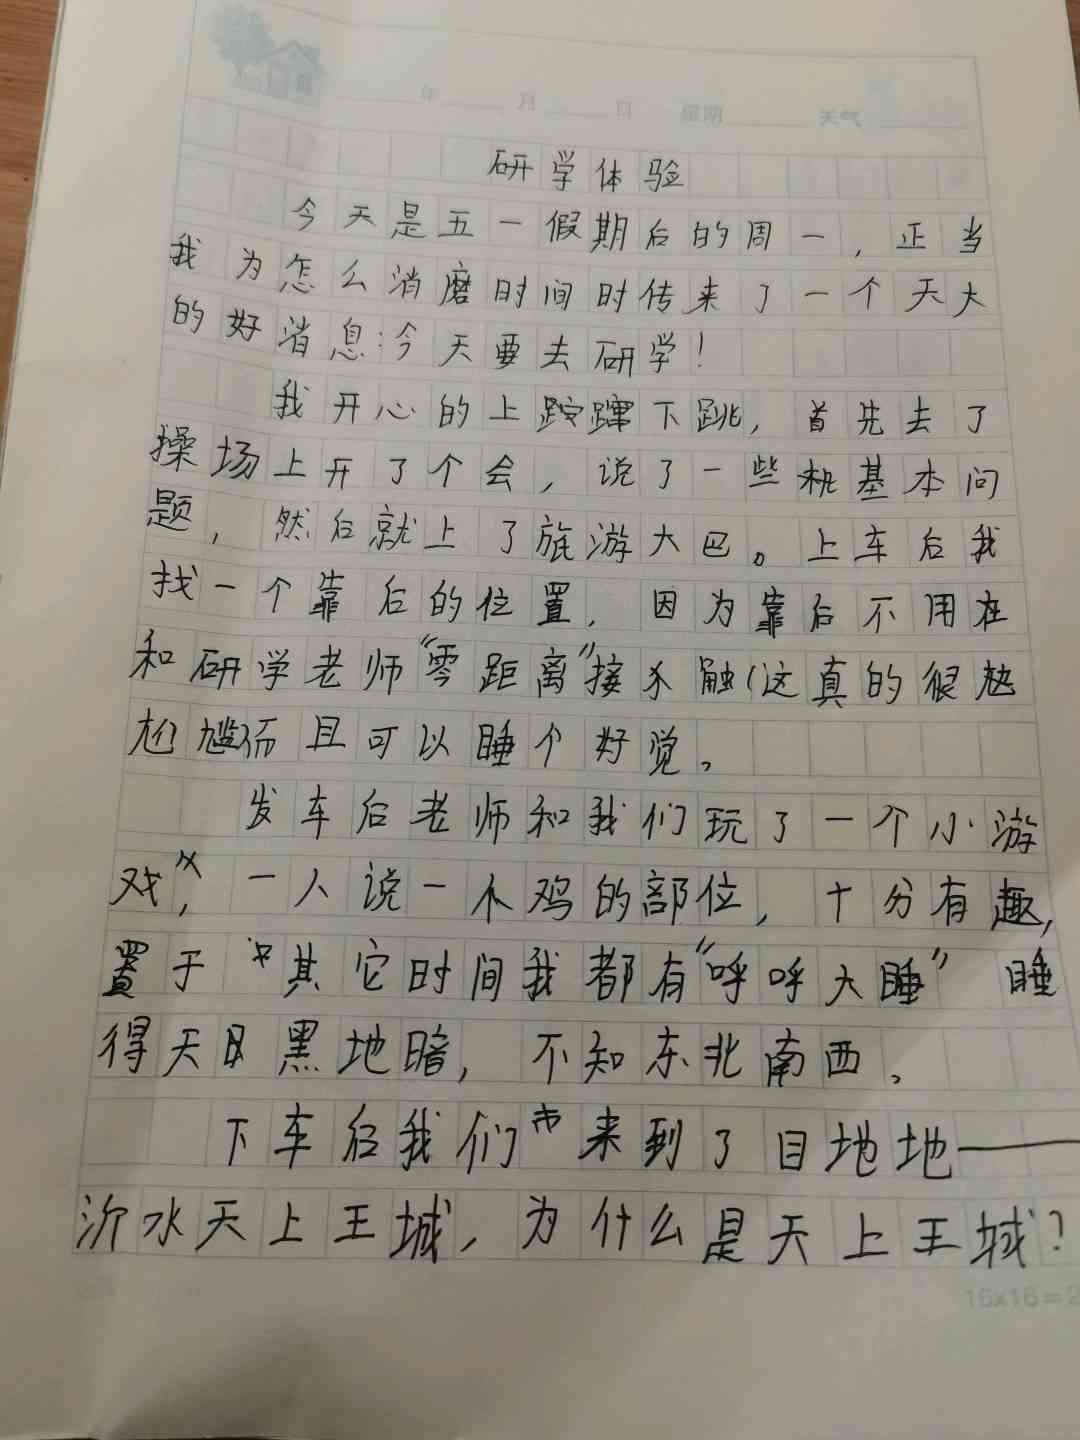 年 月 日 星期 天气
研学体验
今天是五一假期后的周一，正当
我为怎么消磨时间时传来了一个天大
的好消息:今天要去研学！
我开心的上蹿下跳，首先去了
操场上开了个会，说了一些基本问
题，然后就上了旅游大巴。上车后我
找一个靠后的位置，因为靠后不用在
和研学老师“零距离”接触(这真的很
尴尬而且可以睡个好觉。
发车后老师和我们玩了一个小游
戏，一人说一个鸡的部位，十分有趣，
置于其它时间我都有“呼呼大睡”睡
得天昏黑地暗，不知东北南西。
下车后我们来到了目地地——
沂水天上王城，为什么是天上王城？
16x16=2